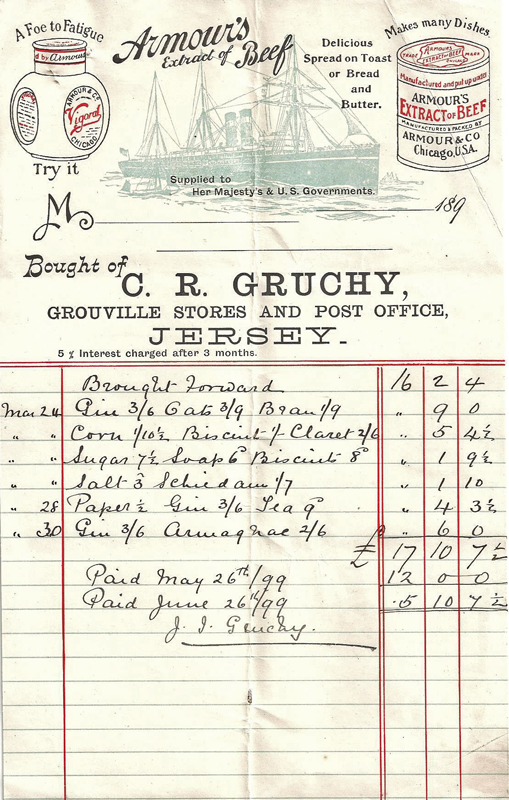 A Foe to Fatigue
Armour's
Extract of Beef
Delicious
Spread on Toast
or Bread
and
Butter.
Makes many Dishes
d by Armour
ARMOUR & CO
Vigoral
CHICAGO
Try it
ARMOUR'S
EXTRACT OF BEEF
Manufactured and put up under
ARMOUR'S
EXTRACT OF BEEF
MANUFACTURED & PACKED BY
ARMOUR & CO
Chicago, U.S.A.
Supplied to
Her Majesty's & U.S. Governments.
M
189
Bought of
C. R. GRUCHY,
GROUVILLE STORES AND POST OFFICE,
JERSEY.
5 % Interest charged after 3 months.
Brought Forward 16 2 4
Mar 24 Gin 3/6 Oats 3/9 Bran 1/9 " 9 0
" " Corn 1/10½ Biscuit 1/- Claret 2/6 " 5 4½
" " Sugar 7½ Soap 6d Biscuits 8d " 1 9½
" " Salt 3d Schiedam 1/7 " 1 10
" 28 Paper ½ Gin 3/6 Tea 9d " 4 3½
" 30 Gin 3/6 Armagnac 2/6 " 6 0
£ 17 10 7½
Paid May 26th/99 12 0 0
Paid June 26th/99 5 10 7½
J. J. Gruchy.